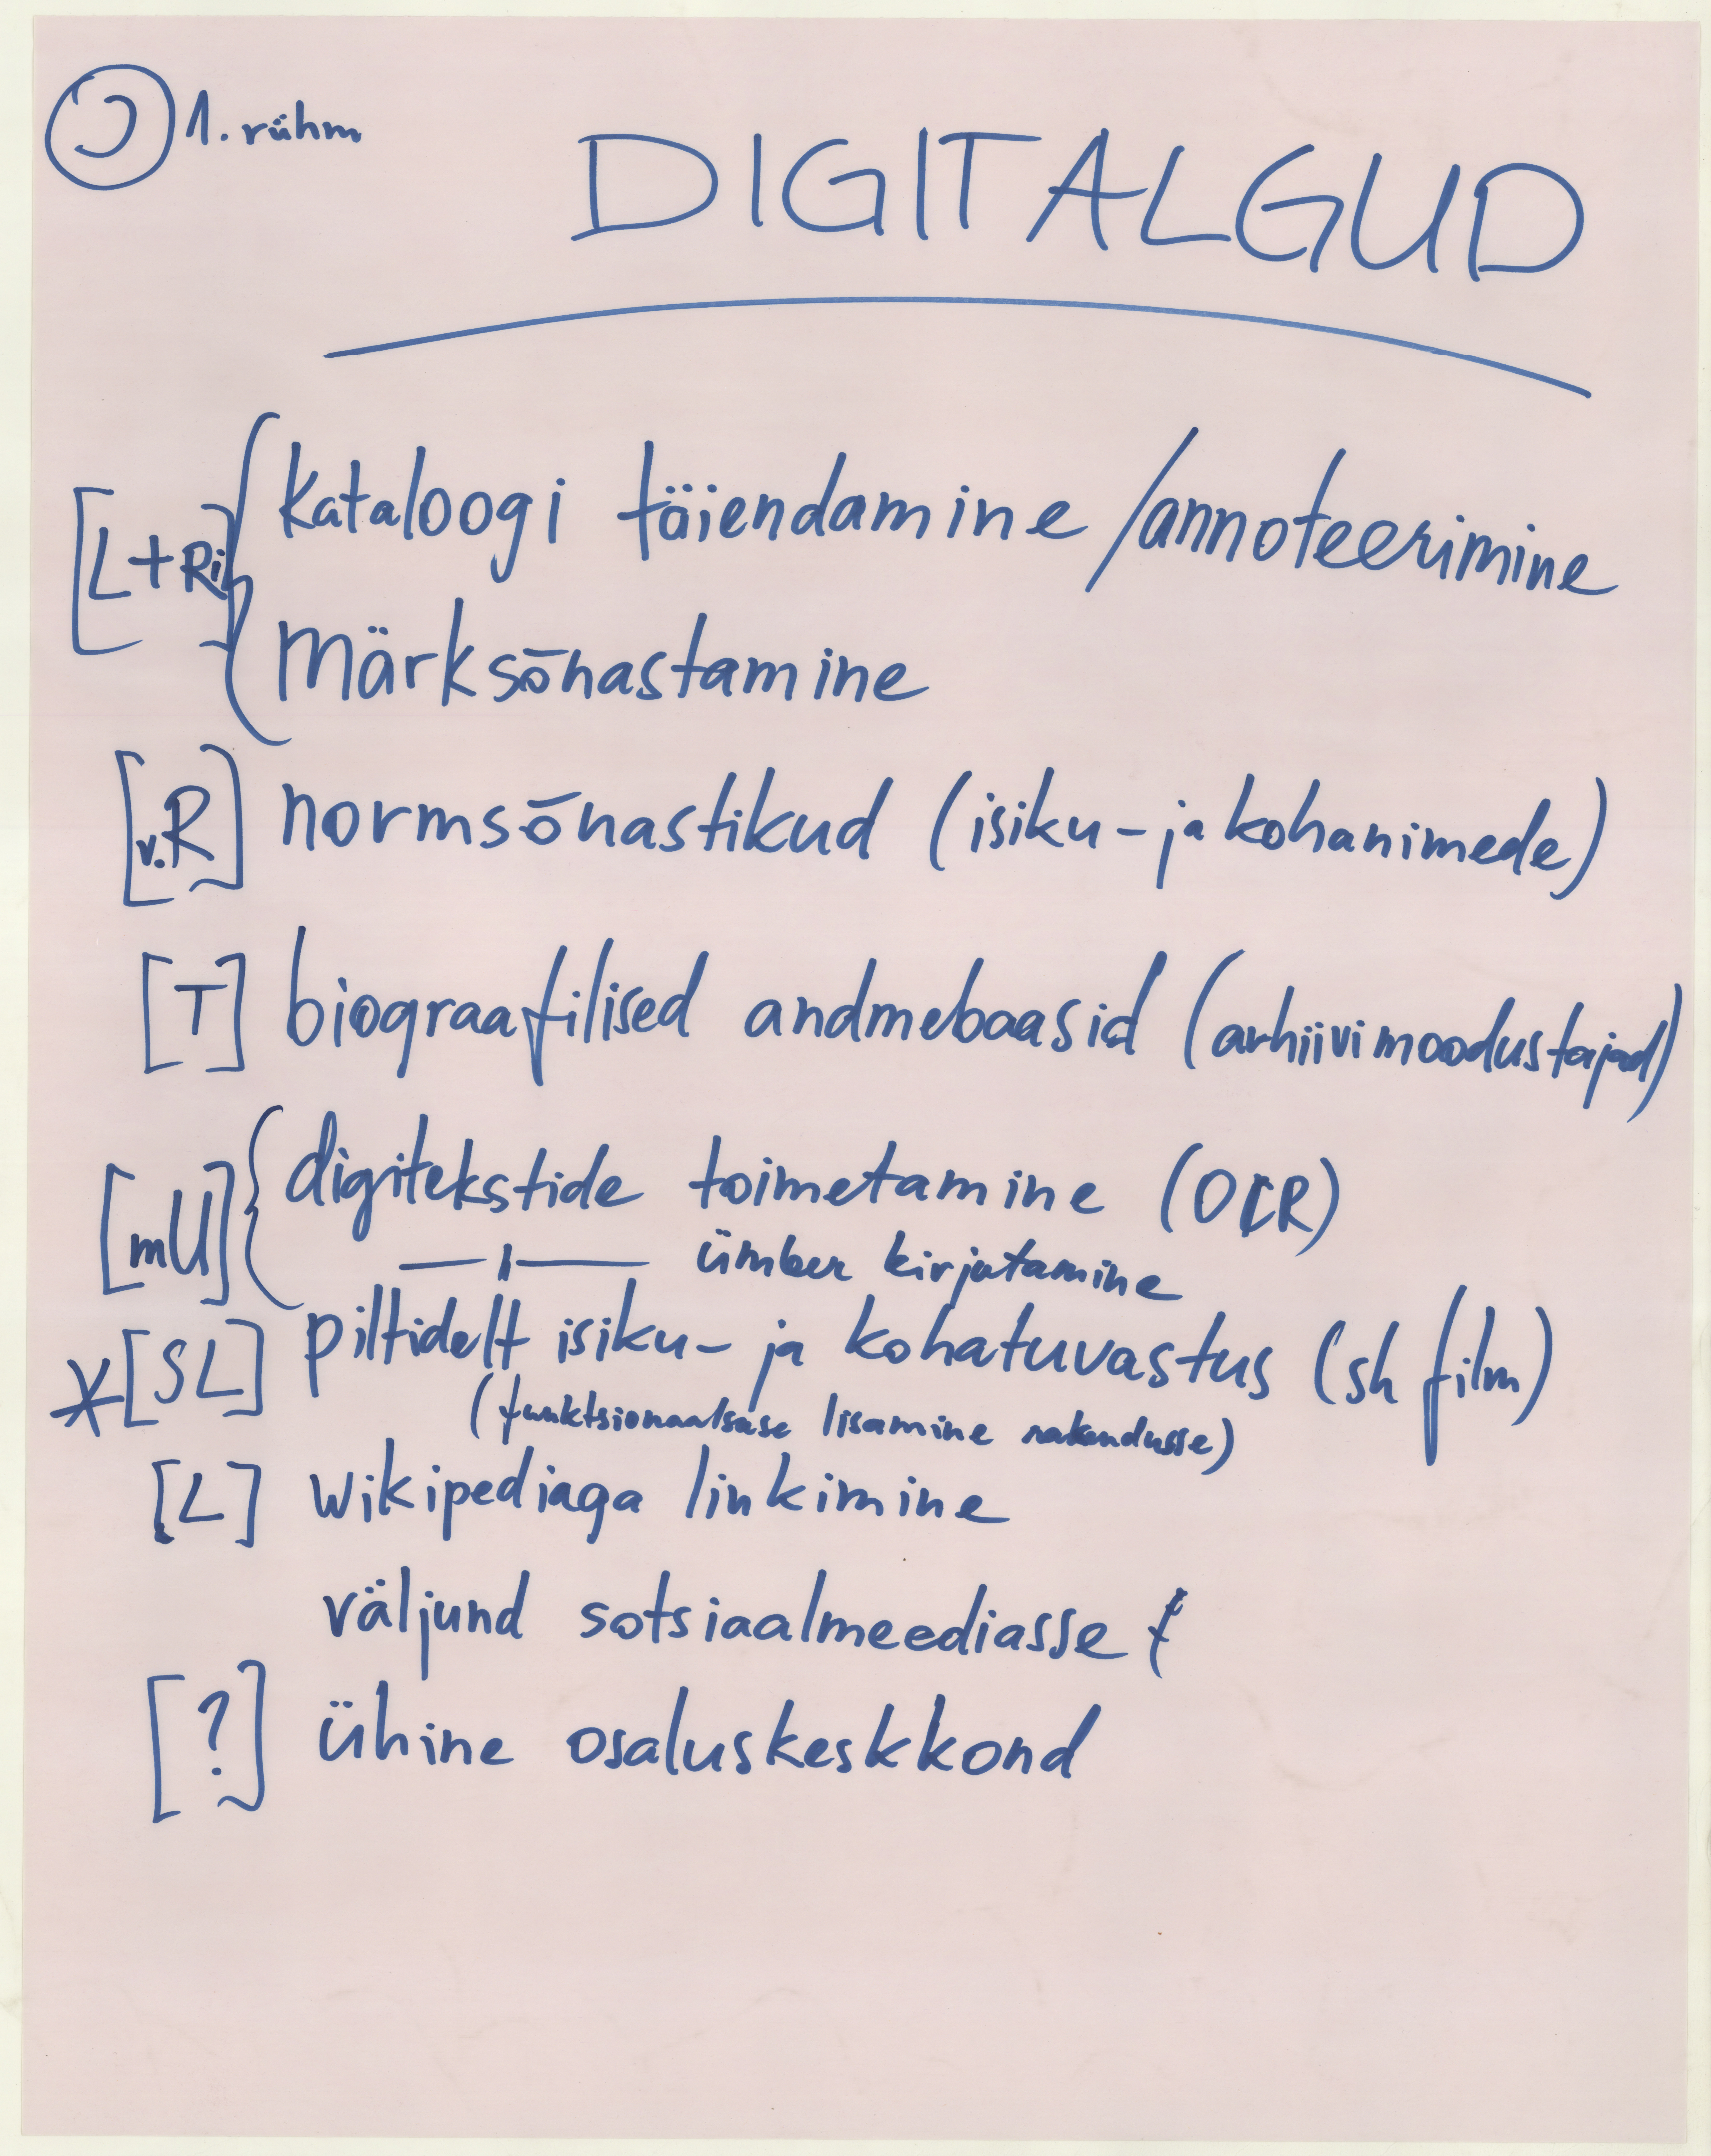 1. rühm
DIGITALGUD
[L+Ri] { kataloogi täiendamine /annoteerimine
märksõnastamine
[v.R] normsõnastikud (isiku- ja kohanimede)
[T] biograafilised andmebaasid (arhiivimoodustajad)
[mU] { digitekstide toimetamine (OCR)
—"— ümber kirjutamine
*[SL] piltidelt isiku- ja kohatuvastus (sh film)
(funktsionaalsuse lisamine rakendusse)
[L] wikipediaga linkimine
väljund sotsiaalmeediasse
[?] ühine osaluskeskkond